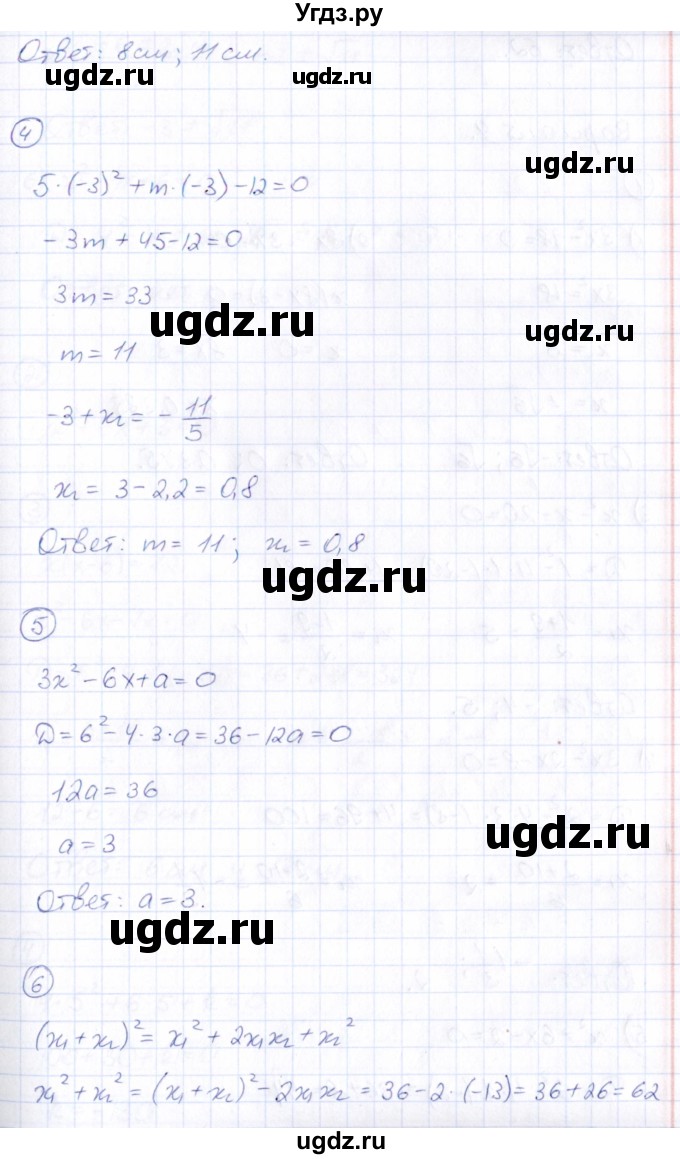 Угдз.ру
Ответ: 8см; 11см.
ugdz.ru ugdz.ru
4
ugdz.ru
5·(-3)² + m·(-3) - 12 = 0
- 3m + 45 - 12 = 0
3m = 33
ugdz.ru ugdz.ru
m = 11
-3 + x₂ = - 11/5
x₂ = 3 - 2,2 = 0,8
Ответ: m = 11; x₂ = 0,8
ugdz.ru
5
3x² - 6x + a = 0
D = 6² - 4·3·a = 36 - 12a = 0
12a = 36
ugdz.ru
a = 3
Ответ: a = 3.
ugdz.ru
6
(x₁ + x₂)² = x₁² + 2x₁x₂ + x₂²
x₁² + x₂² = (x₁ + x₂)² - 2x₁x₂ = 36 - 2·(-13) = 36 + 26 = 62
ugdz.ru